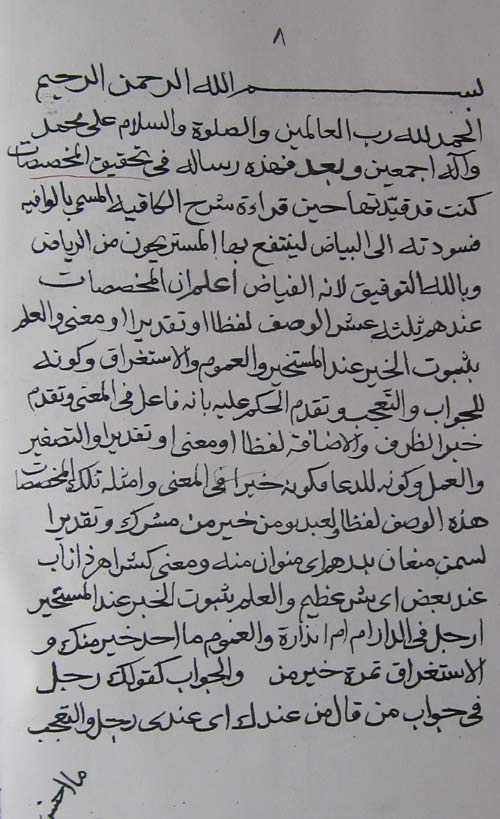 ٨
بسم الله الرحمن الرحيم
الحمد لله رب العالمين والصلوة والسلام على محمد
وآله اجمعين وبعد فهذه رساله فى تحقيق المخصصات
كنت قد قيدتها حين قراءة شرح الكافيه المسمى بالوافيه
فسودته الى البياض لينتفع بها المستريحون من الرياض
وبالله التوفيق لانه الفياض أعلم ان المخصصات
عندهم ثلثه عشر الوصف لفظا او تقديرا او معنى والعلم
بثبوت الخبر عند المستخبر والعموم والاستغراق وكونه
للجواب والتعجب وتقدم الحكم عليه بانه فاعل فى المعنى وتقدم
خبر الظرف والاضافة لفظا او معنى او تقديرا والتصغير
والعمل وكونه للدعا وكونه خبرا فى المعنى وامثله تلك المخصصات
هذه الوصف لفظا ولعبد مومن خير من مشرك وتقديرا
لسمن منوان بدرهم اى منوان منه ومعنى كشر اهر ذا ناب
عند بعض اى شر عظيم والعلم بثبوت الخبر عند المستخبر
ارجل فى الدار ام امراة والعموم ما احد خير منك و
الاستغراق تمرة خير من والجواب كقولك رجل
فى جواب من قال من عندك اى عندى رجل والتعجب
ما احسن